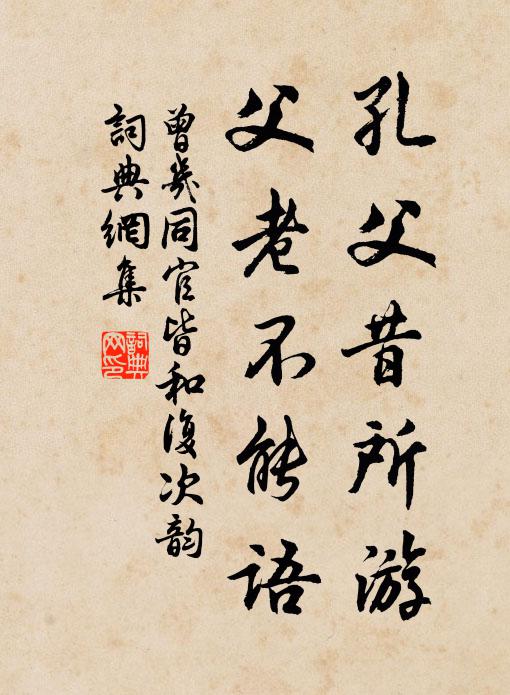 孔父昔所游
父老不能語
曾幾同官皆和復次韵
詞典網集
詞典網印